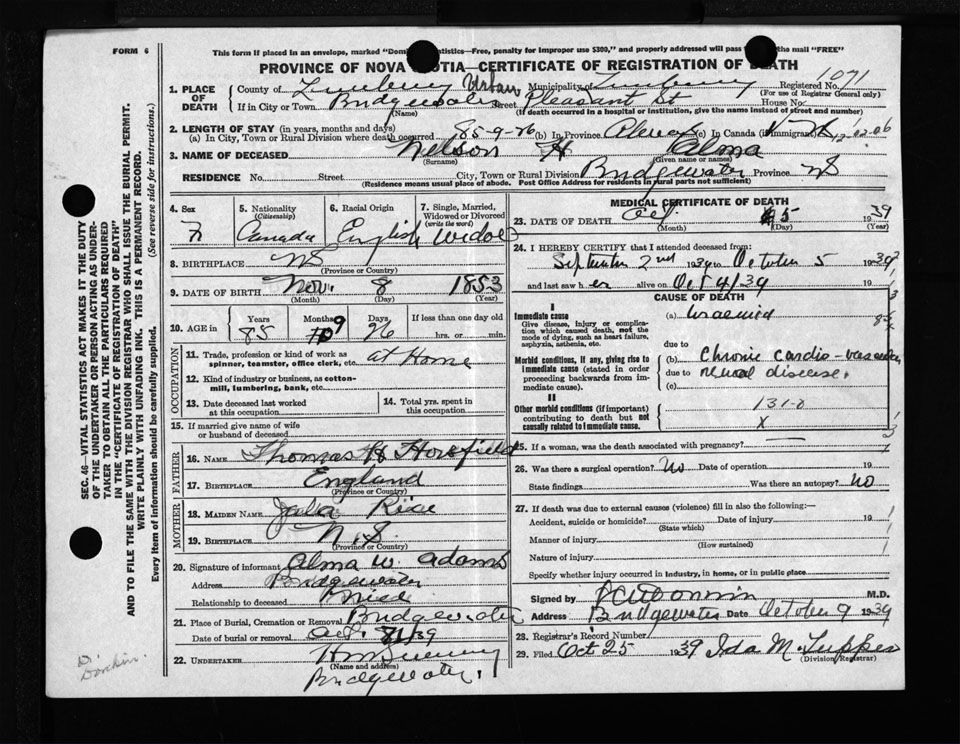 FORM 6
This form if placed in an envelope, marked "Dom tistics—Free, penalty for improper use $300," and properly addressed will pass the mail "FREE"
PROVINCE OF NOVA OTIA—CERTIFICATE OF REGISTRATION OF DEATH
1071
1. PLACE OF DEATH County of Lunenburg Urban Municipality of Lunenburg Registered No.
(For use of Registrar General only)
If in City or Town Bridgewater Street Pleasant St House No.
(Name) (If death occurred in a hospital or institution, give its name instead of street and number)
2. LENGTH OF STAY (in years, months and days)
(a) In City, Town or Rural Division where death occurred 85-9-26 (b) In Province (c) In Canada (if immigrant)
3. NAME OF DECEASED Nelson H Alma
(Surname) (Given name or names)
RESIDENCE No. Street City, Town or Rural Division Bridgewater Province NS
(Residence means usual place of abode. Post Office Address for residents in rural parts not sufficient)
4. Sex 5. Nationality (Citizenship) 6. Racial Origin 7. Single, Married, Widowed or Divorced (write the word)
F Canada English Widow
8. BIRTHPLACE NS
(Province or Country)
9. DATE OF BIRTH Nov. 8 1853
(Month) (Day) (Year)
10. AGE in Years Months Days If less than one day old
85 9 26 hrs. or min.
OCCUPATION
11. Trade, profession or kind of work as spinner, teamster, office clerk, etc. at Home
12. Kind of industry or business, as cotton-mill, lumbering, bank, etc.
13. Date deceased last worked at this occupation
14. Total yrs. spent in this occupation
15. If married give name of wife or husband of deceased
FATHER
16. NAME Thomas Horsfield
17. BIRTHPLACE England
(Province or Country)
MOTHER
18. MAIDEN NAME
19. BIRTHPLACE N.S.
(Province or Country)
20. Signature of informant Alma W. Adams
Address Bridgewater
Relationship to deceased
21. Place of Burial, Cremation or Removal Bridgewater
Date of burial or removal Oct. 8/39
22. UNDERTAKER
(Name and address)
Bridgewater.
MEDICAL CERTIFICATE OF DEATH
23. DATE OF DEATH Oct. 5 1939
(Month) (Day) (Year)
24. I HEREBY CERTIFY that I attended deceased from:
September 2nd 1939 to October 5 1939
and last saw h er alive on Oct 4/39
CAUSE OF DEATH
I
Immediate cause (a) Uraemia
Give disease, injury or complication which caused death, not the mode of dying, such as heart failure, asphyxia, asthenia, etc.
due to
Morbid conditions, if any, giving rise to immediate cause (stated in order proceeding backwards from immediate cause).
(b) Chronic cardio-vascular
due to renal disease.
(c)
II
Other morbid conditions (if important) contributing to death but not causally related to immediate cause.
131-
X
25. If a woman, was the death associated with pregnancy?
26. Was there a surgical operation? No Date of operation 19
State findings Was there an autopsy? No
27. If death was due to external causes (violence) fill in also the following:—
Accident, suicide or homicide? Date of injury 19
(State which)
Manner of injury
(How sustained)
Nature of injury
Specify whether injury occurred in industry, in home, or in public place
Signed by M.D.
Address Bridgewater Date October 9 1939
28. Registrar's Record Number
29. Filed Oct 25 1939 Ida M. Tupper
(Division Registrar)
SEC. 46—VITAL STATISTICS ACT MAKES IT THE DUTY
OF THE UNDERTAKER OR PERSON ACTING AS UNDER-
TAKER TO OBTAIN ALL THE PARTICULARS REQUIRED
IN THE "CERTIFICATE OF REGISTRATION OF DEATH"
AND TO FILE THE SAME WITH THE DIVISION REGISTRAR WHO SHALL ISSUE THE BURIAL PERMIT.
WRITE PLAINLY WITH UNFADING INK. THIS IS A PERMANENT RECORD.
Every item of information should be carefully supplied. (See reverse side for instructions.)